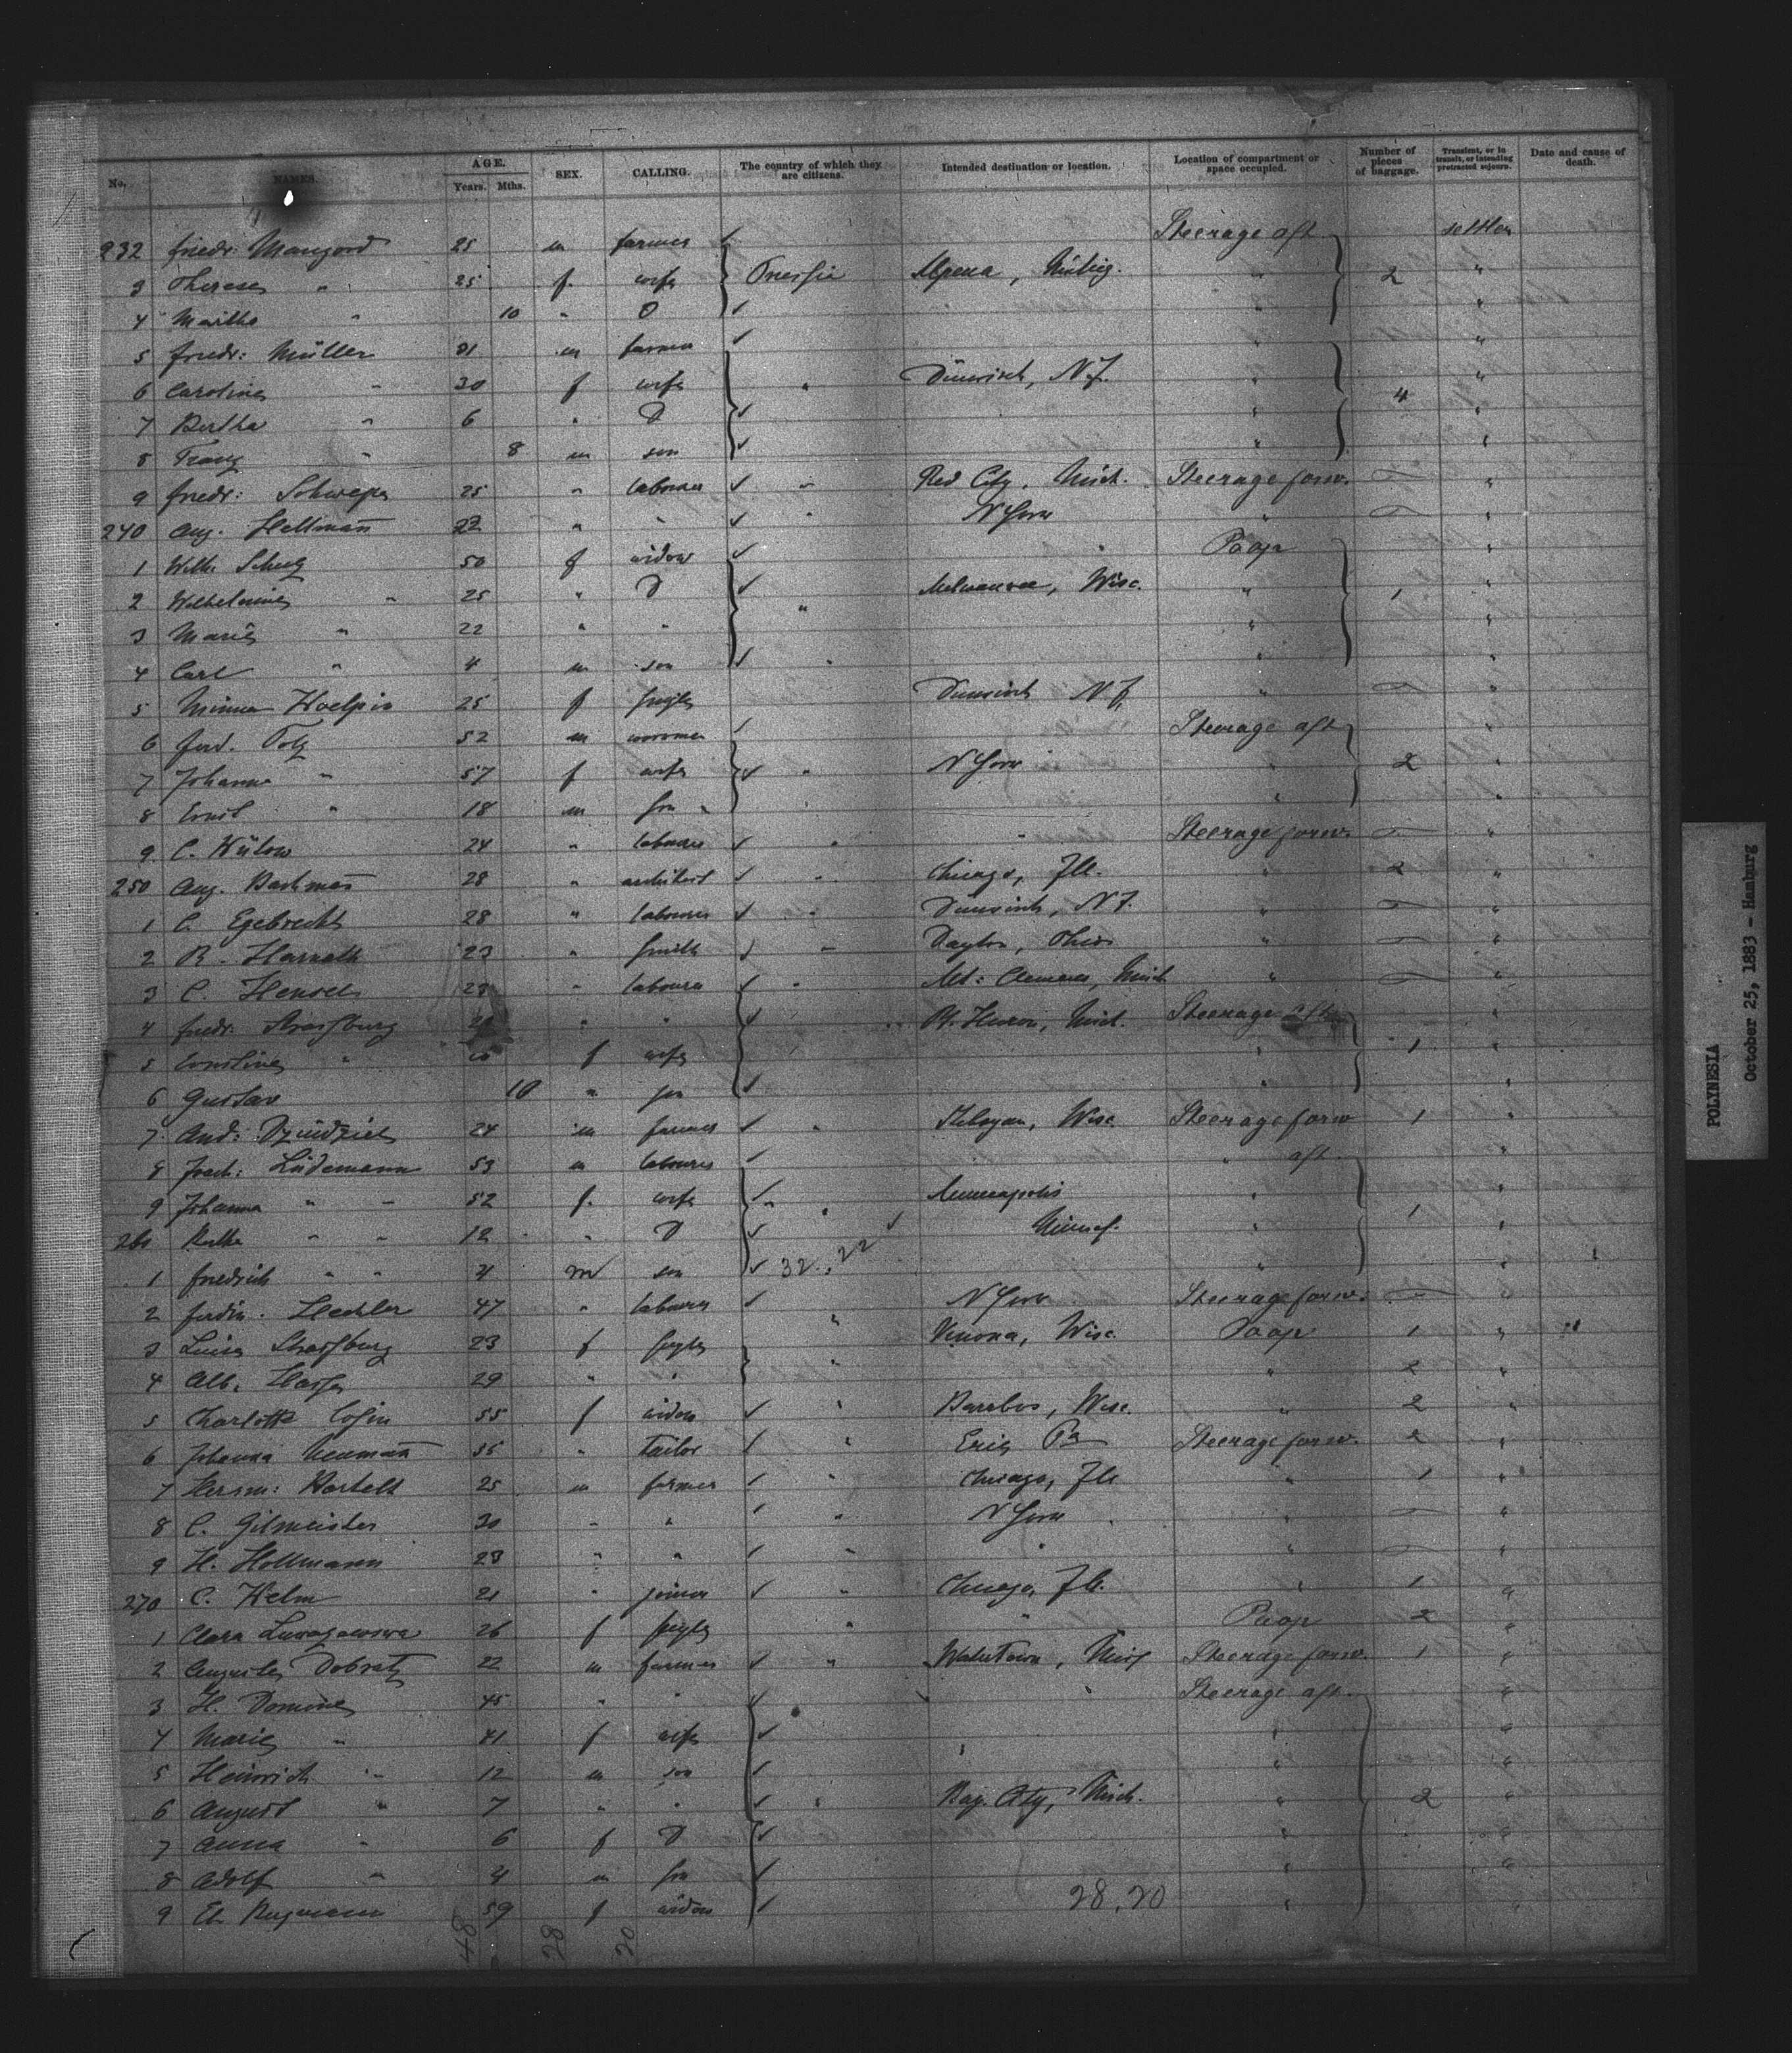 No. NAMES. AGE. Years. Mths. SEX. CALLING. The country of which they are citizens. Intended destination or location. Location of compartment or space occupied. Number of pieces of baggage. Transient, or in transit, or intending protracted sojourn. Date and cause of death.
232 friedr: Mangord 25 m farmer Steerage aft settler
3 Therese " 25 f. wife Prussia Alpena, " 2 "
4 Martha " 10 " D " "
5 friedr: Müller 31 m farmer " "
6 Caroline " 30 f wife " N.J. " 4 "
7 Bertha " 6 " D " "
8 Franz " 8 m son " "
9 friedr: Schweper 25 " labourer " Red City, Mich. Steerage forw. "
240 Aug. Hellmann 22 " " " N York " "
1 Wilh. Schulz 50 f widow " Poop "
2 Wilhelmine " 25 " D " Milwaukee, Wisc. " 1 "
3 Marie " 22 " " " "
4 Carl " 4 m son " " "
5 Minna 25 f single N.J. " "
6 ferd. Polz 52 m workman Steerage aft "
7 Johanna " 57 f wife " N York " 2 "
8 Ernst " 18 m son " "
9 C. Wülow 24 " labourer " " Steerage forw. "
250 Aug. Bachmann 28 " architect " Chicago, Ill. " 2 "
1 C. Egebrecht 28 " labourer " N.J. " "
2 R. Harnath 23 " smith " Dayton, Ohio " "
3 C. Hensel 28 " labourer " Mt: Clemens, Mich " "
4 friedr. Strassburg " " Pt. Huron, Mich. Steerage aft "
5 Ernstine " f wife " 1 "
6 Gustav 10 " son " "
7 And: Dzindziel 24 m farmer " Wisc. Steerage forw 1 "
8 Joach: Lüdemann 53 m labourer " aft "
9 Johanna " " 52 f. wife " Minneapolis " 1
260 " " 12 " D " "
1 friedrich " " 4 m son 32.,22 " "
2 ferdin. Hechler 47 " labourer " N York Steerage forw. "
3 Luise Strassburg 23 f single Winona, Wisc. Poop 1 "
4 Alb. 29 " " " " 2 "
5 Charlotte 55 f widow " Wisc. " 2 "
6 Johanna Neumann 35 " tailor " Erie Pa Steerage forw. 2 "
7 Herm: Bartelt 25 m farmer " Chicago, Ill " 1 "
8 C. Gilmeister 30 " " " N York " "
9 H. Hollmann 23 " " " " " "
270 C. Helm 21 " joiner " Chicago, Ill. " 1 "
1 Clara 26 f single " " Poop 2 "
2 Dobratz 22 m farmer " Watertown, Steerage forw. 1 "
3 H. Domine 45 " " " Steerage aft. "
4 Marie " 41 f wife " "
5 Heinrich " 12 m son " "
6 August " 7 " " " Bay City, Mich. " 2 "
7 Anna " 6 f D " "
8 Adolf " 4 m son " "
9 59 f widow 28,20 "
48 28 20
POLYNESIA
October 25, 1883 - Hamburg